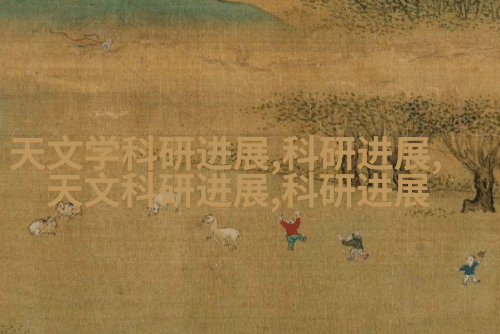 天文学科研进展,科研进展,
天文科研进展,科研进展